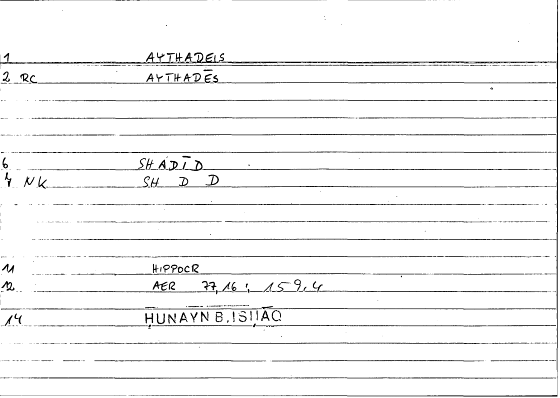 1 AYTHADEIS
2 RC AYTHADĒS
6 SHADĪD
7 NK SH D D
11 HIPPOCR
12 AER 77,16 : 159,4
14 ḤUNAYN B. ISḤĀQ